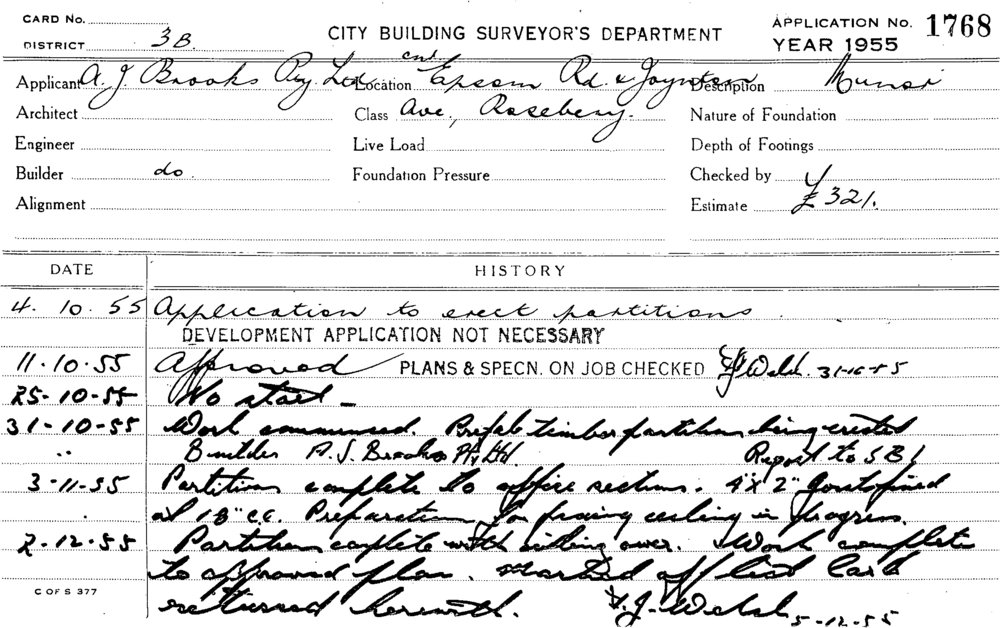 CARD No.
DISTRICT 3B.
CITY BUILDING SURVEYOR'S DEPARTMENT
APPLICATION No. 1768
YEAR 1955
Applicant A. J. Brooks Pty. Ltd. Location cnr Epsom Rd. & Joynton Description Minor
Architect Class Ave., Rosebery. Nature of Foundation
Engineer Live Load Depth of Footings
Builder do Foundation Pressure Checked by
Alignment Estimate £321.
DATE HISTORY
4. 10. 55 Application to erect partitions.
DEVELOPMENT APPLICATION NOT NECESSARY
11-10-55 Approved PLANS & SPECN. ON JOB CHECKED Welsh 31-10-55
25-10-55 No start -
31-10-55 Work commenced. Prefab timber partitions being erected
" Builder A. J. Brooks Pty Ltd. Report to SBI
3-11-55 Partitions complete to office sections. 4"x 2" joists fixed
at 18" c.c. Preparation for fixing ceiling in progress.
2-12-55 Partitions complete with ceiling over. Work complete
to approved plan. Marked off list Card
returned herewith. F. J. Welsh 5-12-55
C OF S 377